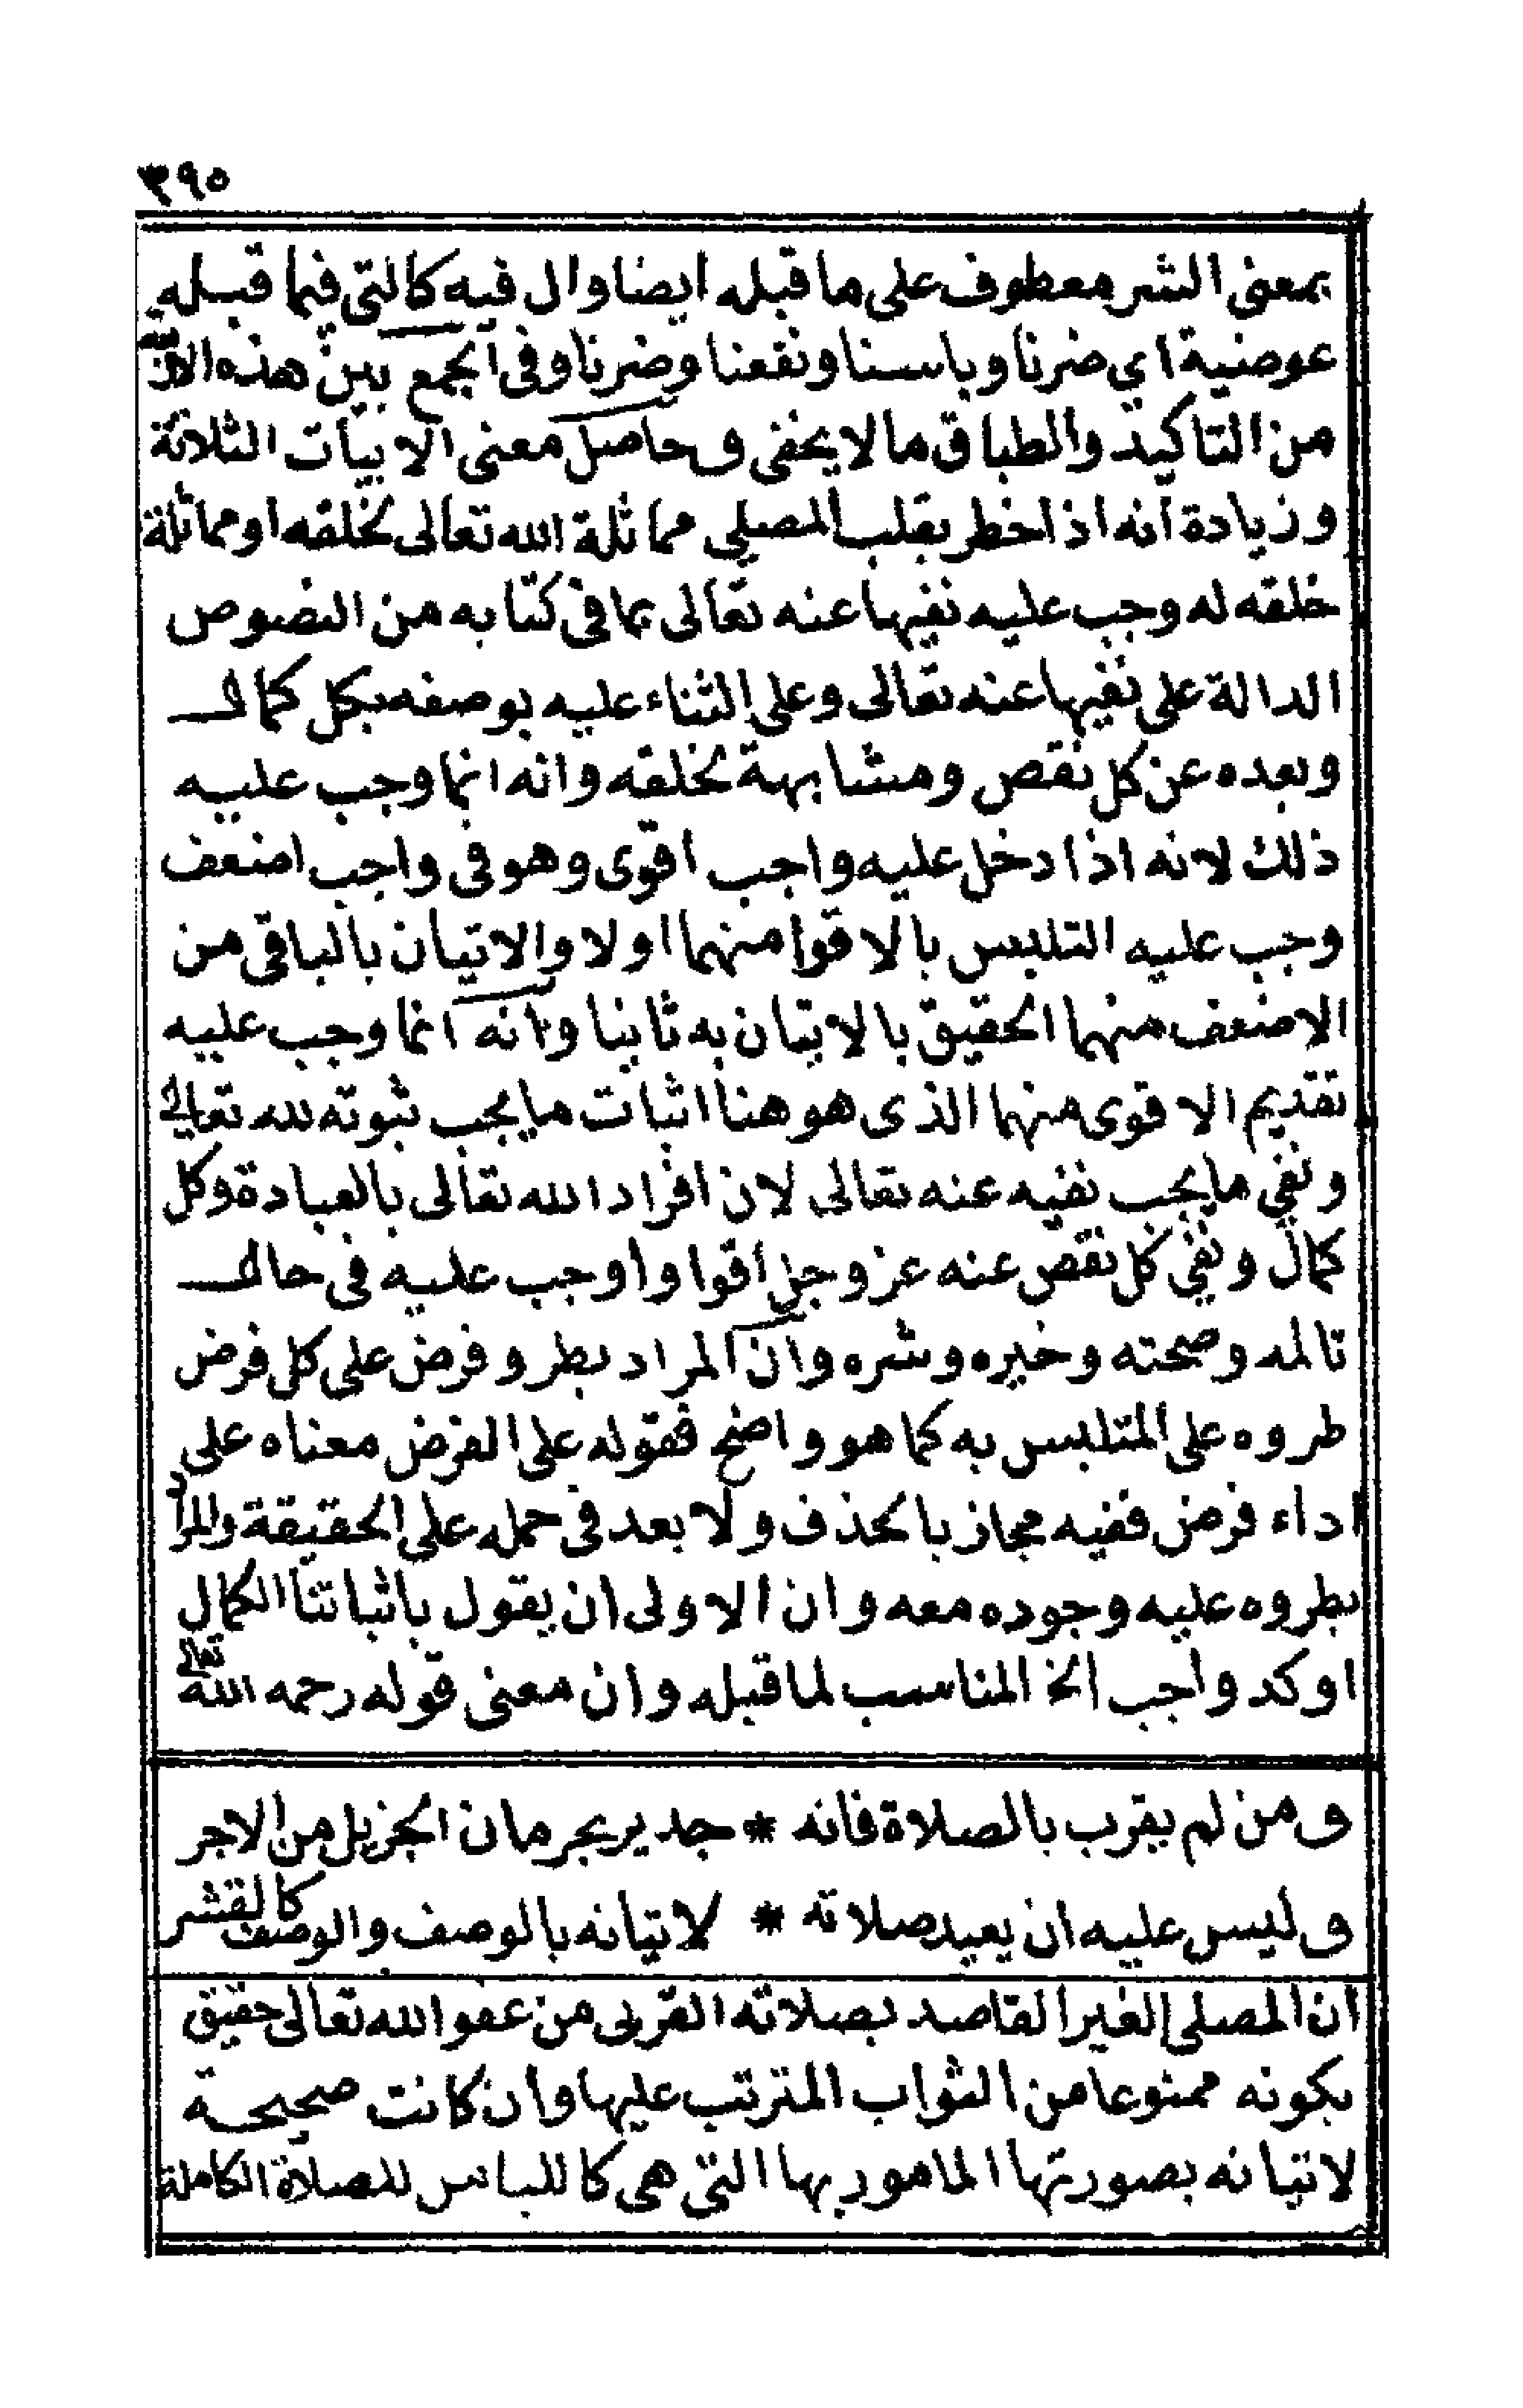 ٣٩٥
بمعنى الشر معطوف على ما قبله ايضا وال فيه كالتى فيما قبله
عوضية اي ضرنا وباسنا ونفعنا وضرنا وفى الجمع بين هذه
من التاكيد والطباق ما لا يخفى وحاصل معنى الابيات الثلاثة
وزيادة انه اذا خطر بقلب المصلي مماثلة الله تعالى لخلقه او مماثلة
خلقه له وجب عليه نفيها عنه تعالى بما فى كتابه من النصوص
الدالة على نفيها عنه تعالى وعلى الثناء عليه بوصفه بكل كمال
وبعده عن كل نقص ومشابهة لخلقه وانه انما وجب عليه
ذلك لانه اذا دخل عليه واجب اقوى وهو فى واجب اضعف
وجب عليه التلبس بالاقوا منهما اولا والاتيان بالباقى من
الاضعف منهما الحقيق بالاتيان به ثانيا وانه انما وجب عليه
تقديم الاقوى منهما الذى هو هنا اثبات ما يجب ثبوته لله تعالى
ونفي ما يجب نفيه عنه تعالى لان افراد الله تعالى بالعبادة وكل
كمال ونفي كل نقص عنه عز وجل اقوا واوجب عليه فى حال
تالمه وصحته وخيره وشره وان المراد بطرو فرض على كل فرض
طروه على المتلبس به كما هو واضح فقوله على الفرض معناه على
اداء فرض ففيه مجاز بالحذف ولا بعد فى حمله على الحقيقة والمراد
بطروه عليه وجوده معه وان الاولى ان يقول باثباتنا الكمال
اوكد واجب الخ المناسب لما قبله وان معنى قوله رحمه الله تعالى
ومن لم يقرب بالصلاة فانه * جدير بحرمان الجزيل من الاجر
وليس عليه ان يعيد صلاته * لاتيانه بالوصف والوصف كالقشر
ان المصلى الغير القاصد بصلاته القربى من عفو الله تعالى حقيق
بكونه ممنوعا من الثواب المترتب عليها وان كانت صحيحة
لاتيانه بصورتها المامور بها التى هى كاللباس للصلاة الكاملة